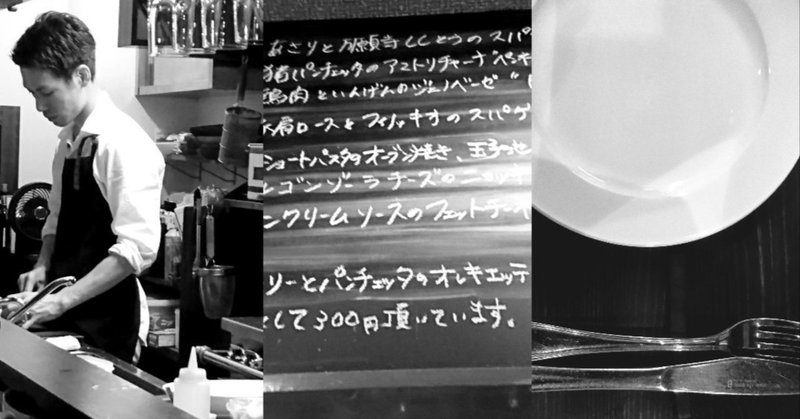 あさりと万願寺ししとうのスパ
猪パンチェッタのアマトリチャーナ"ペンネ
鶏肉といんげんのジェノベーゼ"
肩ロースとフィノッキオのスパゲ
ショートパスタのオーブン焼き、玉子のせ
ゴンゾーラチーズのニョッキ
ンクリームソースのフェットチーネ
リーとパンチェッタのオレキエッテ
して300円頂いています。